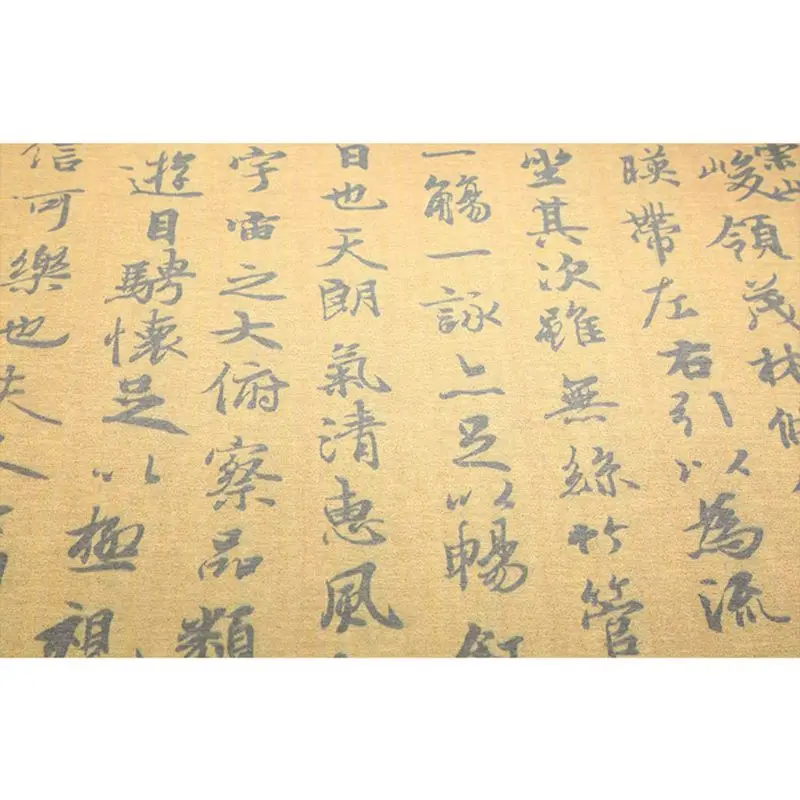 峻領茂林脩
暎帶左右引以為流
坐其次雖無絲竹管
一觴一詠亦足以暢敘
日也天朗氣清惠風
宇宙之大俯察品類
遊目騁懷足以極視
信可樂也夫人